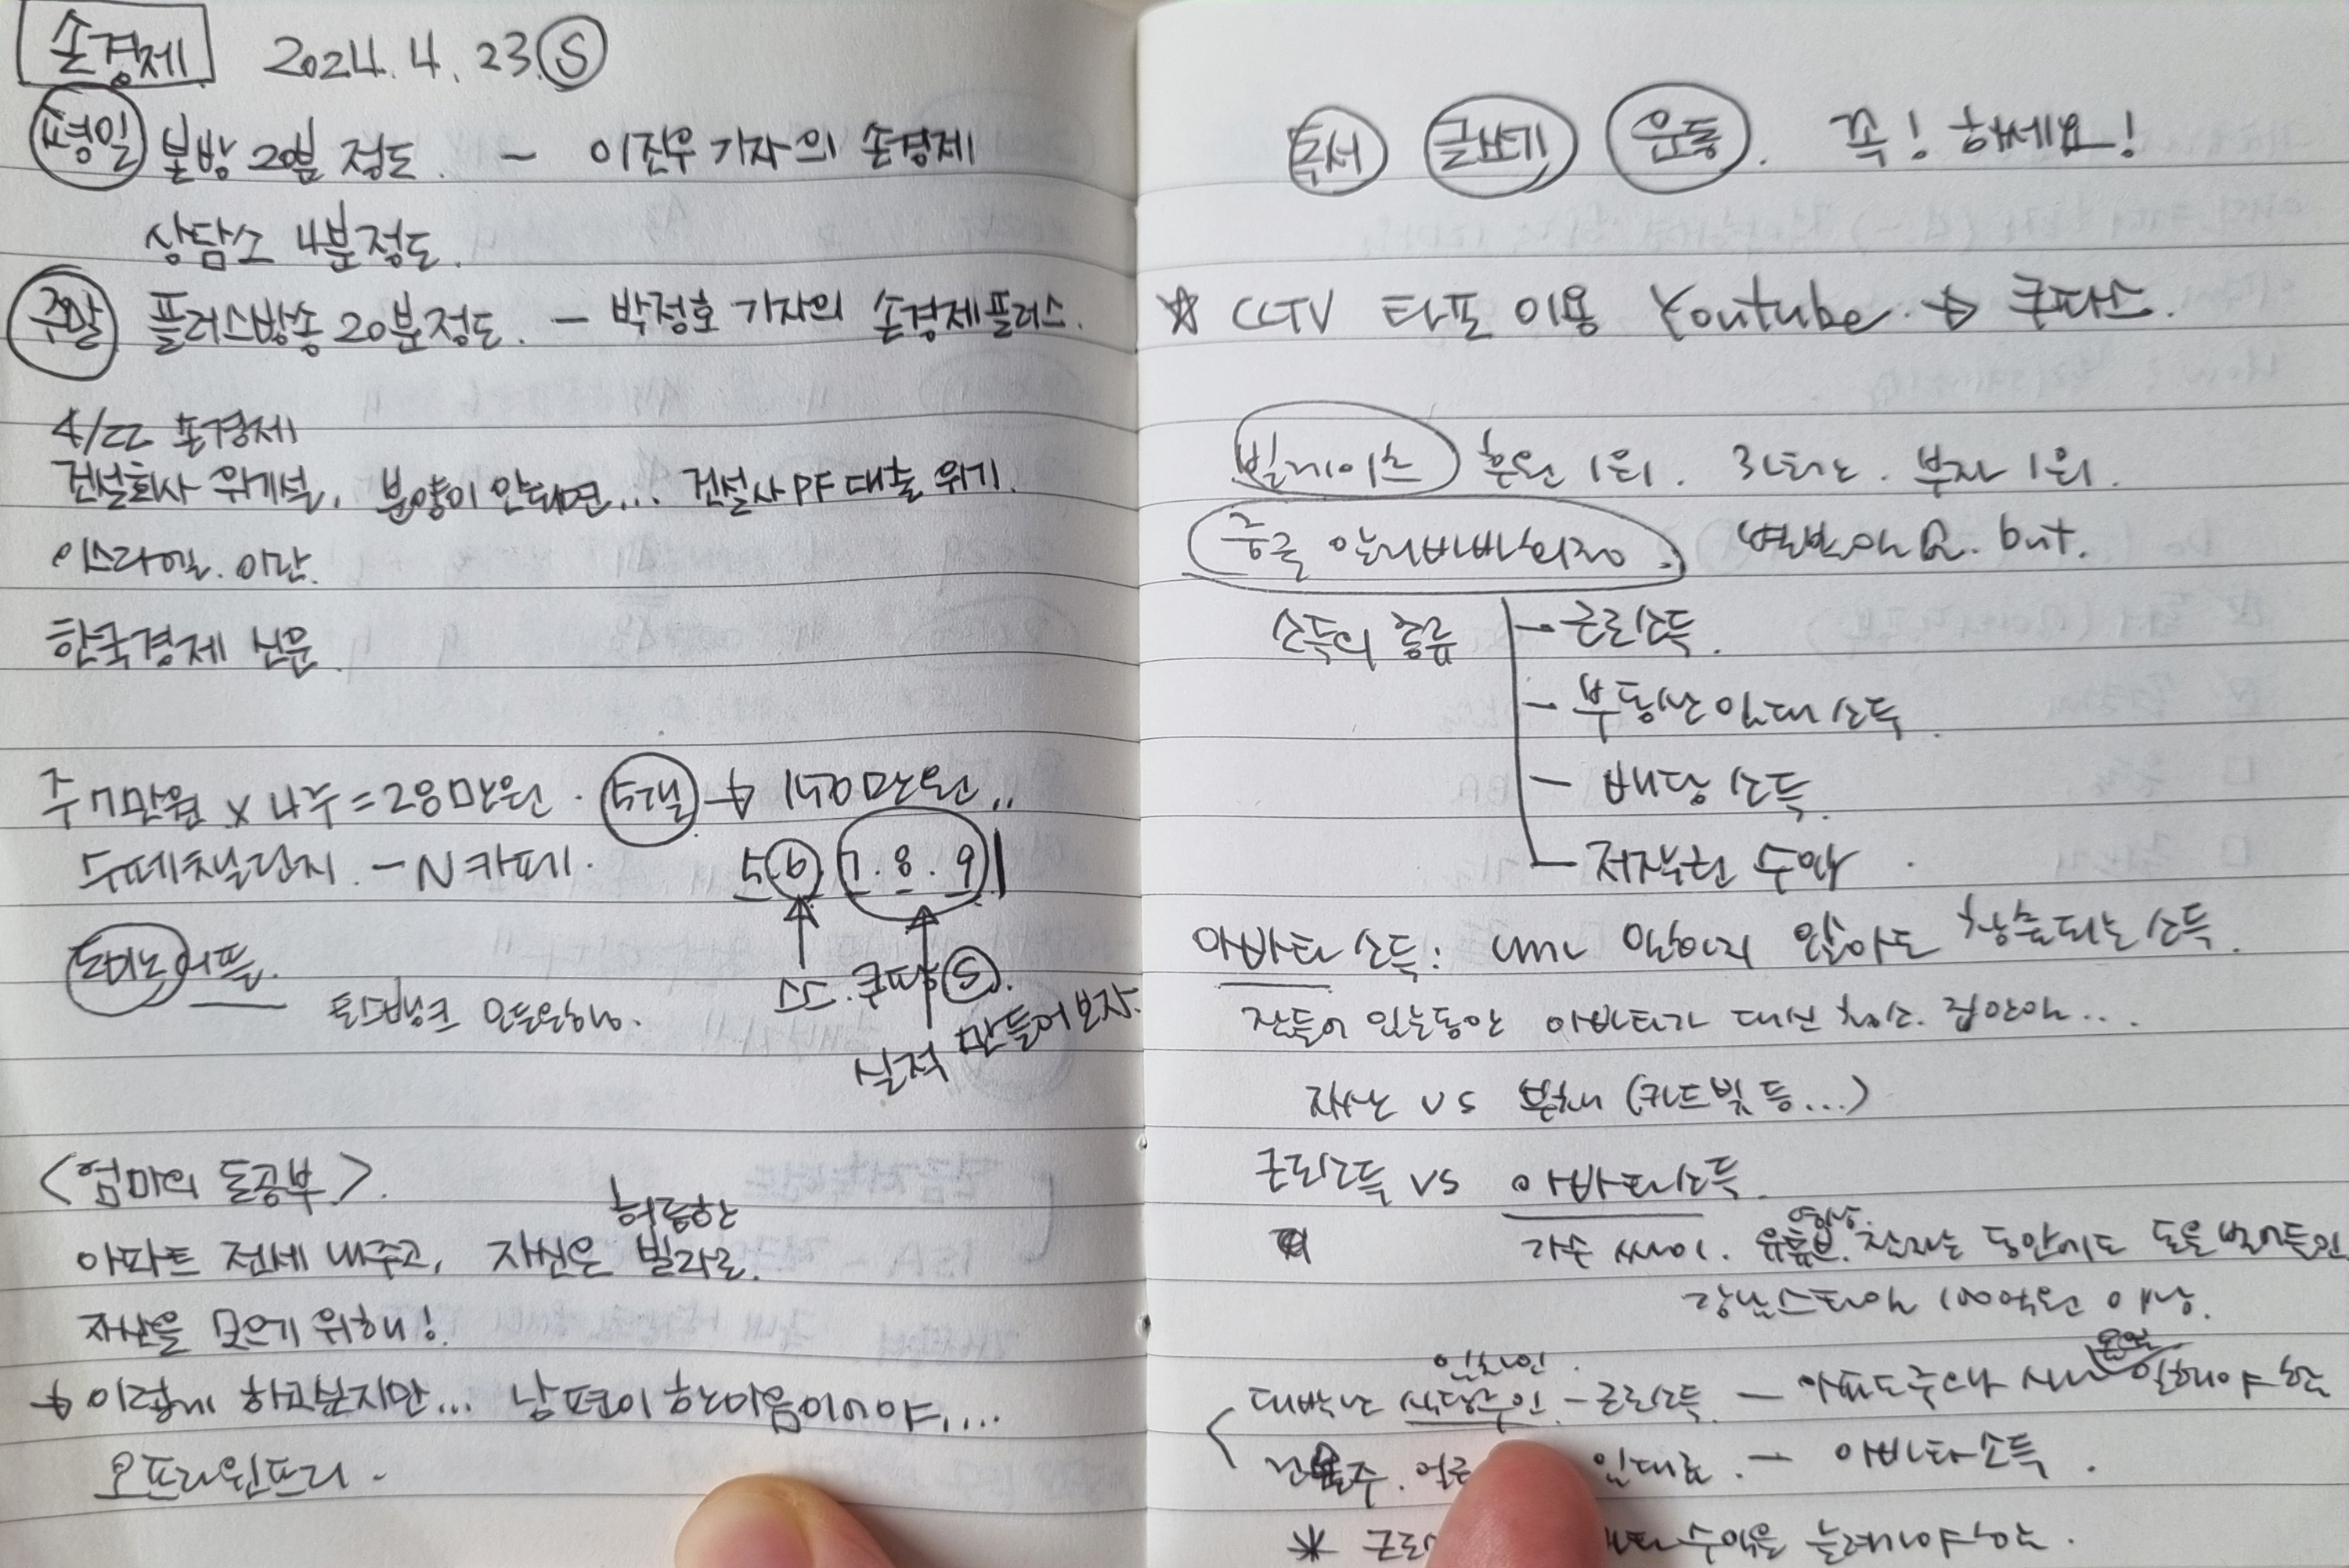 손경제 2024. 4. 23. S
평일 본방 20분 정도. - 이진우 기자의 손경제
상담소 4분정도.
주말 플러스방송 20분정도. - 박정호 기자의 손경제플러스.
4/22 손경제
건설회사 위기설, 분양이 안되면... 건설사 PF 대출 위기.
이스라엘. 이란.
한국경제 신문.
주 7만원 x 4주 = 28만원. 5개월 → 150만원..
- N카페.
5. 6. 7. 8. 9
도미노 어플.
실적 만들어보자.
<엄마의 돈공부>.
허름한
아파트 전세 내주고, 자신은 빌라로.
자산을 모으기 위해!
→ 이렇게 하고싶지만... 남편이 한마음이어야....
오프라윈프리.
독서 글쓰기 운동. 꼭! 하세요!
☆ CCTV 타포 이용 Youtube. → 쿠파스.
빌게이츠 후원 1위. 부자 1위.
중국 알리바바회장. but.
소득의 종류 - 근로소득.
- 부동산 임대 소득.
- 배당 소득.
- 저작권 수익.
아바타 소득: 내가 일하지 않아도 창출되는 소득.
잠들어 있는동안 아바타가 대신 청소. 집안일...
자산 vs 부채 (카드빚 등...)
근로소득 vs 아바타소득.
영상.
가수 싸이. 유튜브. 잠자는 동안에도 돈을 벌어들인
강남스타일 100억원 이상.
임차인.
대박난 식당주인 - 근로소득. - 아파도 일해야 함
건물주. 임대료. - 아바타소득.
* 수익을 늘려가야 하는.